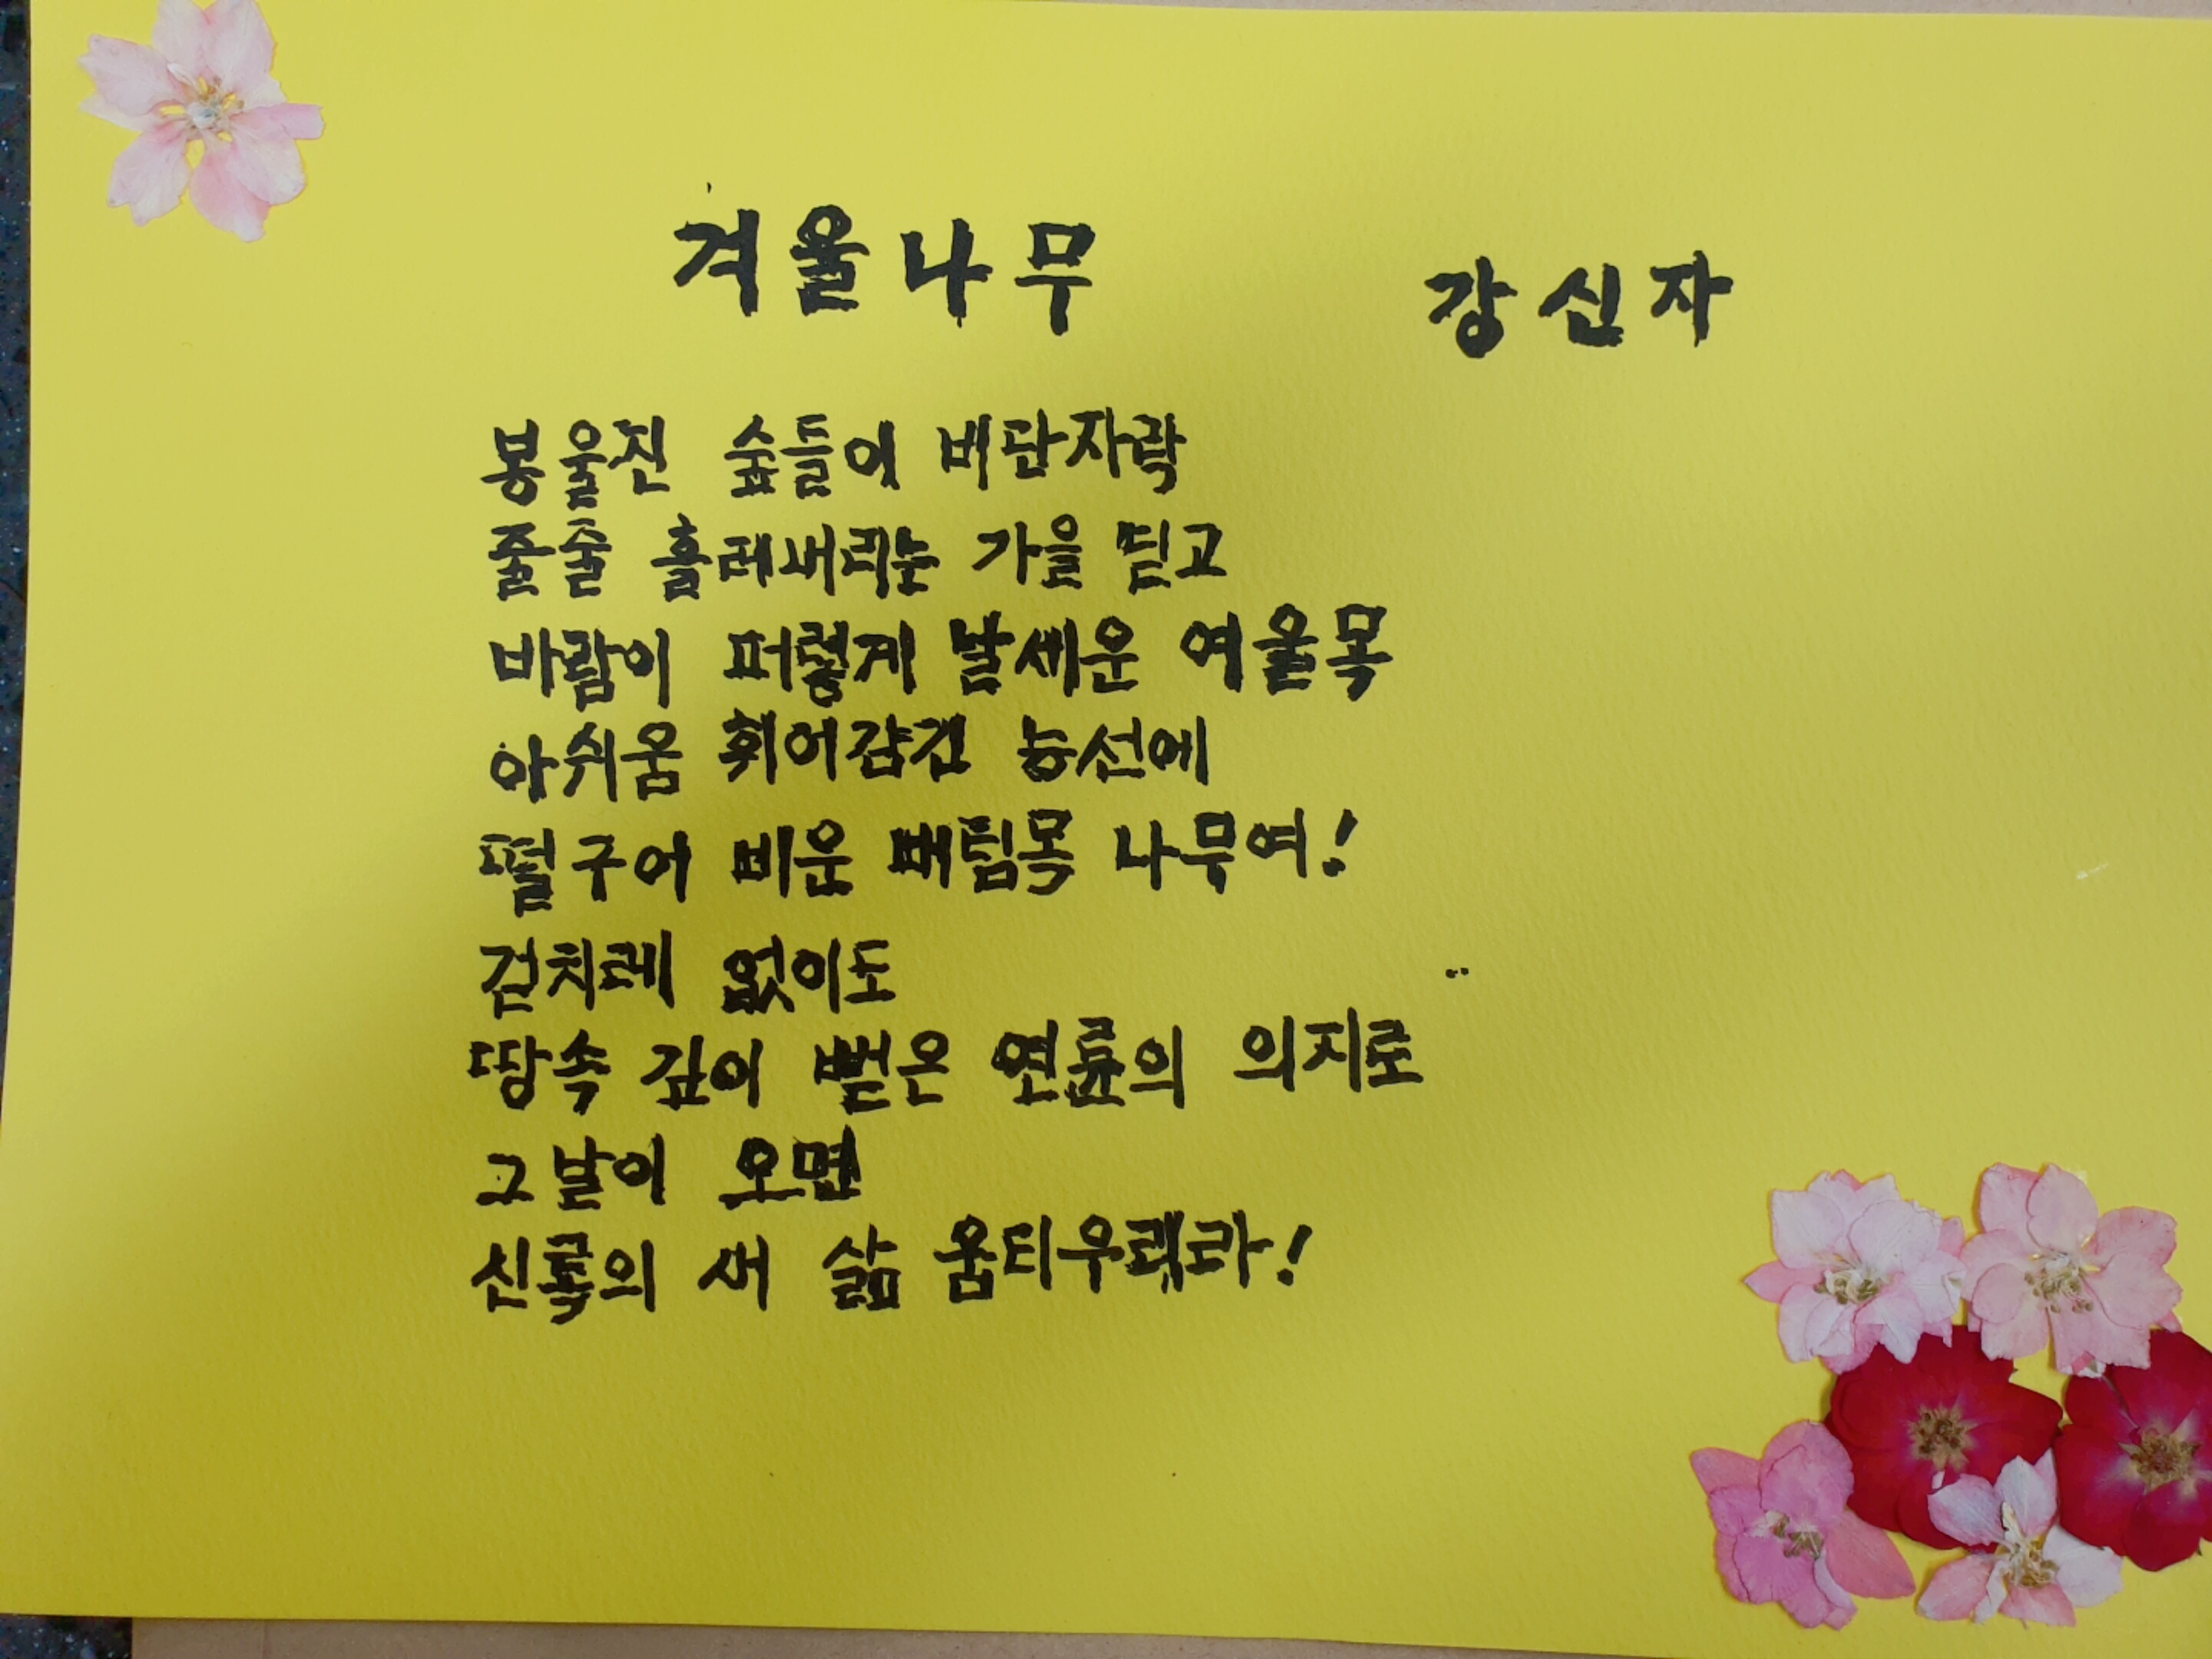 겨울나무 강신자
봉울진 숲들이 비단자락
줄줄 흘레내리는 가을 딛고
바람이 퍼렇게 날세운 여울목
아쉬움 휘어감긴 능선에
떨구어 비운 버팀목 나무여!
겉치레 없이도
땅속 깊이 뻗은 연륜의 의지로
그날이 오면
신록의 새 삶 움티우리라!